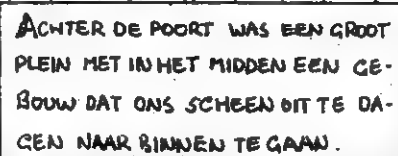 ACHTER DE POORT WAS EEN GROOT
PLEIN MET IN HET MIDDEN EEN GE-
BOUW DAT ONS SCHEEN UIT TE DA-
GEN NAAR BINNEN TE GAAN.